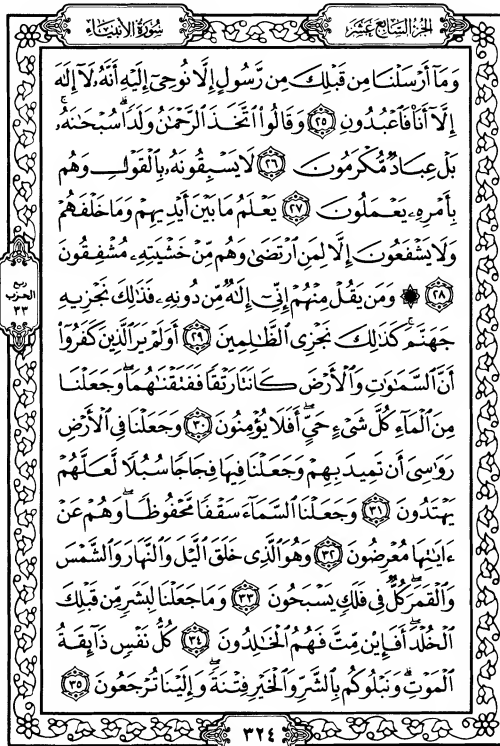 سُورَةُ الأَنبِيَاءِ
الجُزْءُ السَّابِعَ عَشَرَ
وَمَآ أَرْسَلْنَا مِن قَبْلِكَ مِن رَّسُولٍ إِلَّا نُوحِىٓ إِلَيْهِ أَنَّهُۥ لَآ إِلَٰهَ
إِلَّآ أَنَا۠ فَٱعْبُدُونِ ٢٥ وَقَالُوا۟ ٱتَّخَذَ ٱلرَّحْمَٰنُ وَلَدًا ۗ سُبْحَٰنَهُۥ ۚ
بَلْ عِبَادٌ مُّكْرَمُونَ ٢٦ لَا يَسْبِقُونَهُۥ بِٱلْقَوْلِ وَهُم
بِأَمْرِهِۦ يَعْمَلُونَ ٢٧ يَعْلَمُ مَا بَيْنَ أَيْدِيهِمْ وَمَا خَلْفَهُمْ
وَلَا يَشْفَعُونَ إِلَّا لِمَنِ ٱرْتَضَىٰ وَهُم مِّنْ خَشْيَتِهِۦ مُشْفِقُونَ
٢٨ ۞ وَمَن يَقُلْ مِنْهُمْ إِنِّىٓ إِلَٰهٌ مِّن دُونِهِۦ فَذَٰلِكَ نَجْزِيهِ
جَهَنَّمَ ۚ كَذَٰلِكَ نَجْزِى ٱلظَّٰلِمِينَ ٢٩ أَوَلَمْ يَرَ ٱلَّذِينَ كَفَرُوٓا۟
أَنَّ ٱلسَّمَٰوَٰتِ وَٱلْأَرْضَ كَانَتَا رَتْقًا فَفَتَقْنَٰهُمَا ۖ وَجَعَلْنَا
مِنَ ٱلْمَآءِ كُلَّ شَىْءٍ حَىٍّ ۖ أَفَلَا يُؤْمِنُونَ ٣٠ وَجَعَلْنَا فِى ٱلْأَرْضِ
رَوَٰسِىَ أَن تَمِيدَ بِهِمْ وَجَعَلْنَا فِيهَا فِجَاجًا سُبُلًا لَّعَلَّهُمْ
يَهْتَدُونَ ٣١ وَجَعَلْنَا ٱلسَّمَآءَ سَقْفًا مَّحْفُوظًا ۖ وَهُمْ عَنْ
ءَايَٰتِهَا مُعْرِضُونَ ٣٢ وَهُوَ ٱلَّذِى خَلَقَ ٱلَّيْلَ وَٱلنَّهَارَ وَٱلشَّمْسَ
وَٱلْقَمَرَ ۖ كُلٌّ فِى فَلَكٍ يَسْبَحُونَ ٣٣ وَمَا جَعَلْنَا لِبَشَرٍ مِّن قَبْلِكَ
ٱلْخُلْدَ ۖ أَفَإِي۟ن مِّتَّ فَهُمُ ٱلْخَٰلِدُونَ ٣٤ كُلُّ نَفْسٍ ذَآئِقَةُ
ٱلْمَوْتِ ۗ وَنَبْلُوكُم بِٱلشَّرِّ وَٱلْخَيْرِ فِتْنَةً ۖ وَإِلَيْنَا تُرْجَعُونَ ٣٥
ربع
الحزب
٣٣
٣٢٤